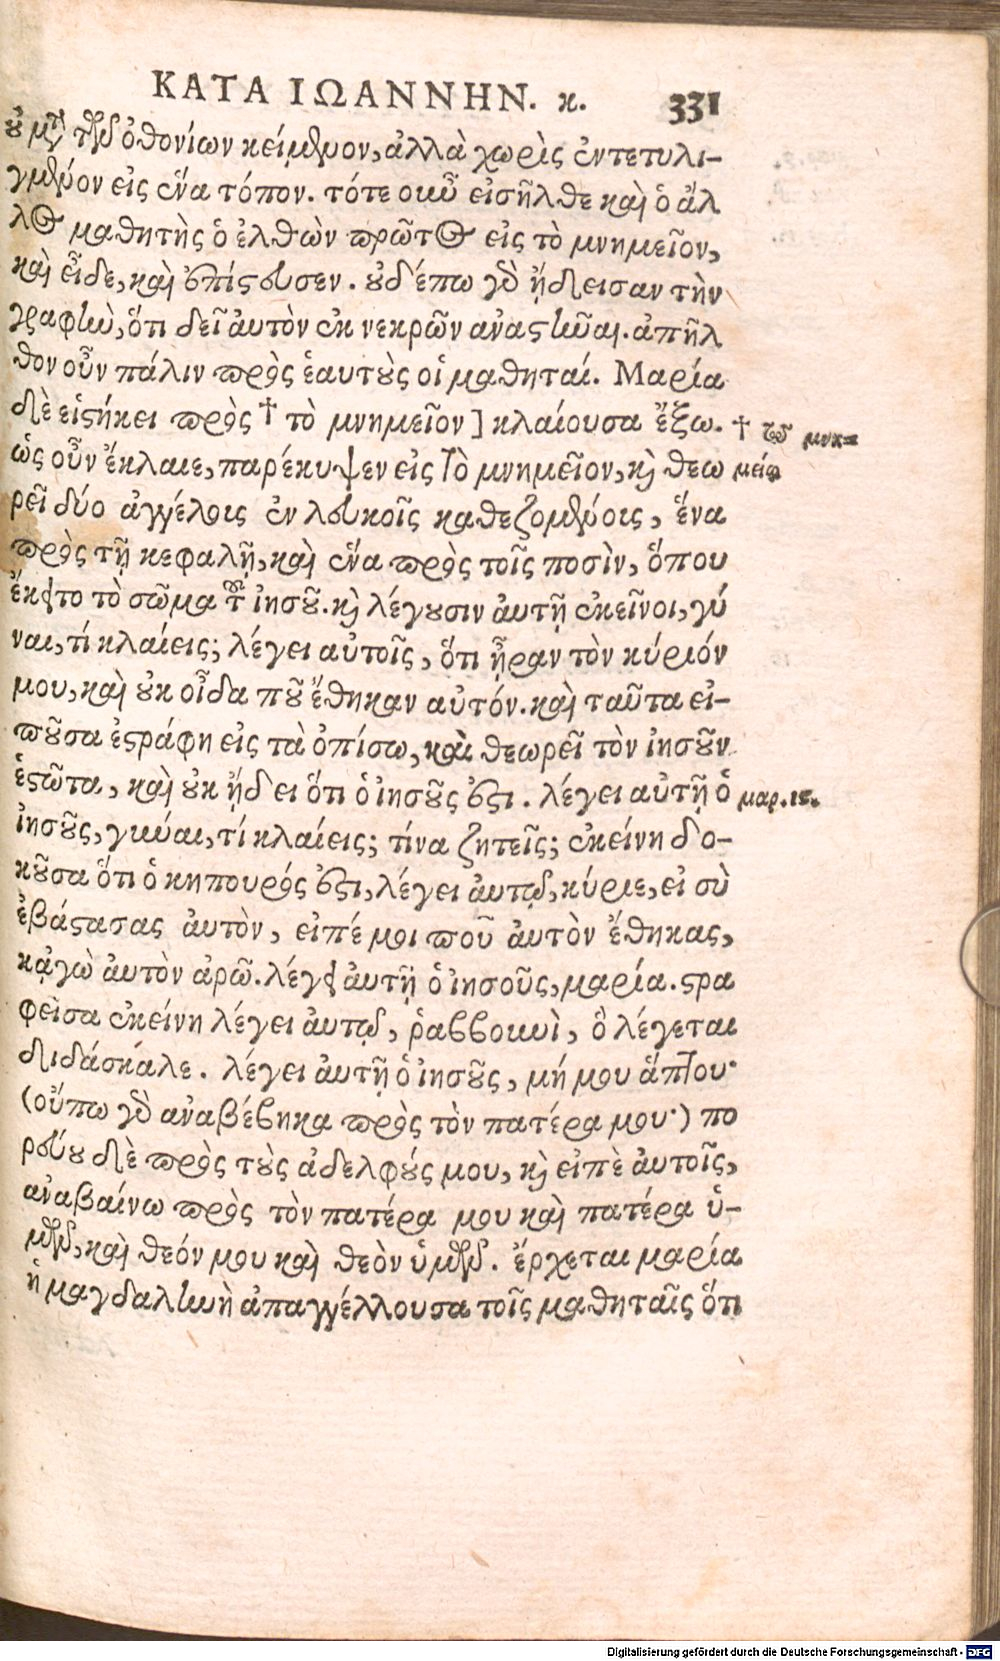 ΚΑΤΑ ΙΩΑΝΝΗΝ. κ. 331
οὐ μετὰ τῶν ὀθονίων κείμενον, ἀλλὰ χωρὶς ἐντετυλι-
γμένον εἰς ἕνα τόπον. τότε οὖν εἰσῆλθε καὶ ὁ ἄλ
λος μαθητὴς ὁ ἐλθὼν πρῶτος εἰς τὸ μνημεῖον,
καὶ εἶδε, καὶ ἐπίστευσεν. οὐδέπω γὰρ ᾔδεισαν τὴν
γραφὴν, ὅτι δεῖ ἀυτὸν ἐκ νεκρῶν ἀναστῆναι. ἀπῆλ
θον οὖν πάλιν πρὸς ἑαυτοὺς οἱ μαθηταί. Μαρία
δὲ εἱστήκει πρὸς † τὸ μνημεῖον ] κλαίουσα ἔξω.
† τῷ μνη-
μείῳ
ὡς οὖν ἔκλαιε, παρέκυψεν εἰς τὸ μνημεῖον, καὶ θεω
ρεῖ δύο ἀγγέλοις ἐν λευκοῖς καθεζομένοις, ἕνα
πρὸς τῇ κεφαλῇ, καὶ ἕνα πρὸς τοῖς ποσὶν, ὅπου
ἔκειτο τὸ σῶμα τοῦ ἰησοῦ. καὶ λέγουσιν ἀυτῇ ἐκεῖνοι, γύ
ναι, τί κλαίεις; λέγει αὐτοῖς, ὅτι ἦραν τὸν κύριόν
μου, καὶ οὐκ οἶδα ποῦ ἔθηκαν αὐτόν. καὶ ταῦτα εἰ-
ποῦσα ἐστράφη εἰς τὰ ὀπίσω, καὶ θεωρεῖ τὸν ἰησοῦν
ἑστῶτα, καὶ οὐκ ᾔδει ὅτι ὁ ἰησοῦς ἐστι. λέγει αὐτῇ ὁ
μαρ. ις.
ἰησοῦς, γύναι, τί κλαίεις; τίνα ζητεῖς; ἐκείνη δο-
κοῦσα ὅτι ὁ κηπουρός ἐστι, λέγει ἀυτῷ, κύριε, εἰ σὺ
ἐβάστασας ἀυτὸν, εἰπέ μοι ποῦ ἀυτὸν ἔθηκας,
κᾀγὼ ἀυτὸν ἀρῶ. λέγει ἀυτῇ ὁ ἰησοῦς, μαρία. στρα
φεῖσα ἐκείνη λέγει ἀυτῷ, ῥαββουνὶ, ὃ λέγεται
διδάσκαλε. λέγει ἀυτῇ ὁ ἰησοῦς, μή μου ἅπτου·
(οὔπω γὰρ ἀναβέβηκα πρὸς τὸν πατέρα μου·) πο
ρεύου δὲ πρὸς τοὺς ἀδελφούς μου, καὶ εἰπὲ ἀυτοῖς,
ἀναβαίνω πρὸς τὸν πατέρα μου καὶ πατέρα ὑ-
μῶν, καὶ θεόν μου καὶ θεὸν ὑμῶν. ἔρχεται μαρία
ἡ μαγδαληνὴ ἀπαγγέλλουσα τοῖς μαθηταῖς ὅτι
Digitalisierung gefördert durch die Deutsche Forschungsgemeinschaft - DFG